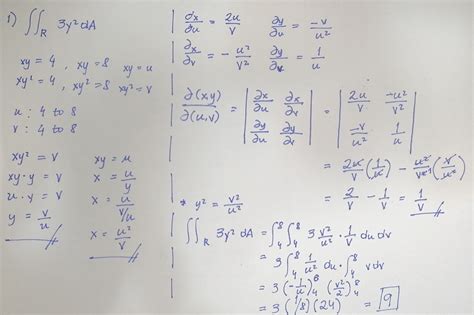 1) ∬_R 3y² dA
xy = 4 , xy = 8   xy = u
xy² = 4 , xy² = 8   xy² = v
u : 4 to 8
v : 4 to 8
xy² = v
xy · y = v
u · y = v
y = v/u
xy = u
x = u/y
x = u/(v/u)
x = u²/v
∂x/∂u = 2u/v   ∂y/∂u = -v/u²
∂x/∂v = -u²/v²   ∂y/∂v = 1/u
∂(x,y)/∂(u,v) = | ∂x/∂u ∂x/∂v ; ∂y/∂u ∂y/∂v | = | 2u/v -u²/v² ; -v/u² 1/u |
= 2u/v (1/u) - u²/v² (v/u²)
= 2/v - 1/v = 1/v
* y² = v²/u²
∬_R 3y² dA = ∫₄⁸ ∫₄⁸ 3 v²/u² · 1/v du dv
= 3 ∫₄⁸ 1/u² du · ∫₄⁸ v dv
= 3 (-1/u)₄⁸ (v²/2)₄⁸
= 3 (1/8) (24) = 9